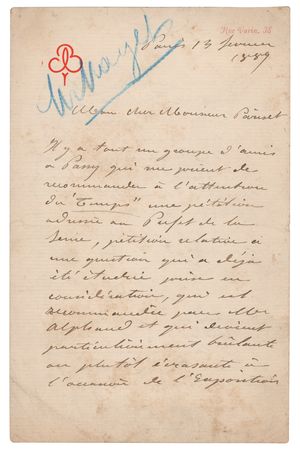 Rue Varin, 35
Paris 13 février
1889
Mr Mayet
Mon cher Monsieur Pariset
Il y a tout un groupe d'amis
à Passy qui me prient de
recommander à l'attention
du "Temps" une pétition
adressée au Préfet de la
Seine, pétition relative à
une question qui a déjà
été étudiée prise en
considération, qui est
recommandée par Mr
Alphand et qui devient
particulièrement brûlante
ou plutôt écrasante à
l'occasion de l'Exposition